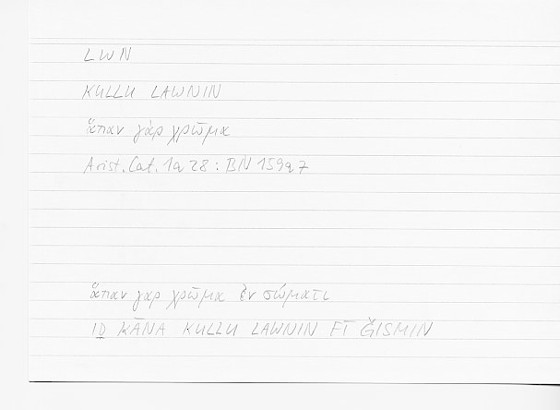 LWN
KULLU LAWNIN
ἅπαν γὰρ χρῶμα
Arist. Cat. 1a 28 : BN 159a7
ἅπαν γὰρ χρῶμα ἐν σώματι
ID KĀNA KULLU LAWNIN FĪ ǦISMIN